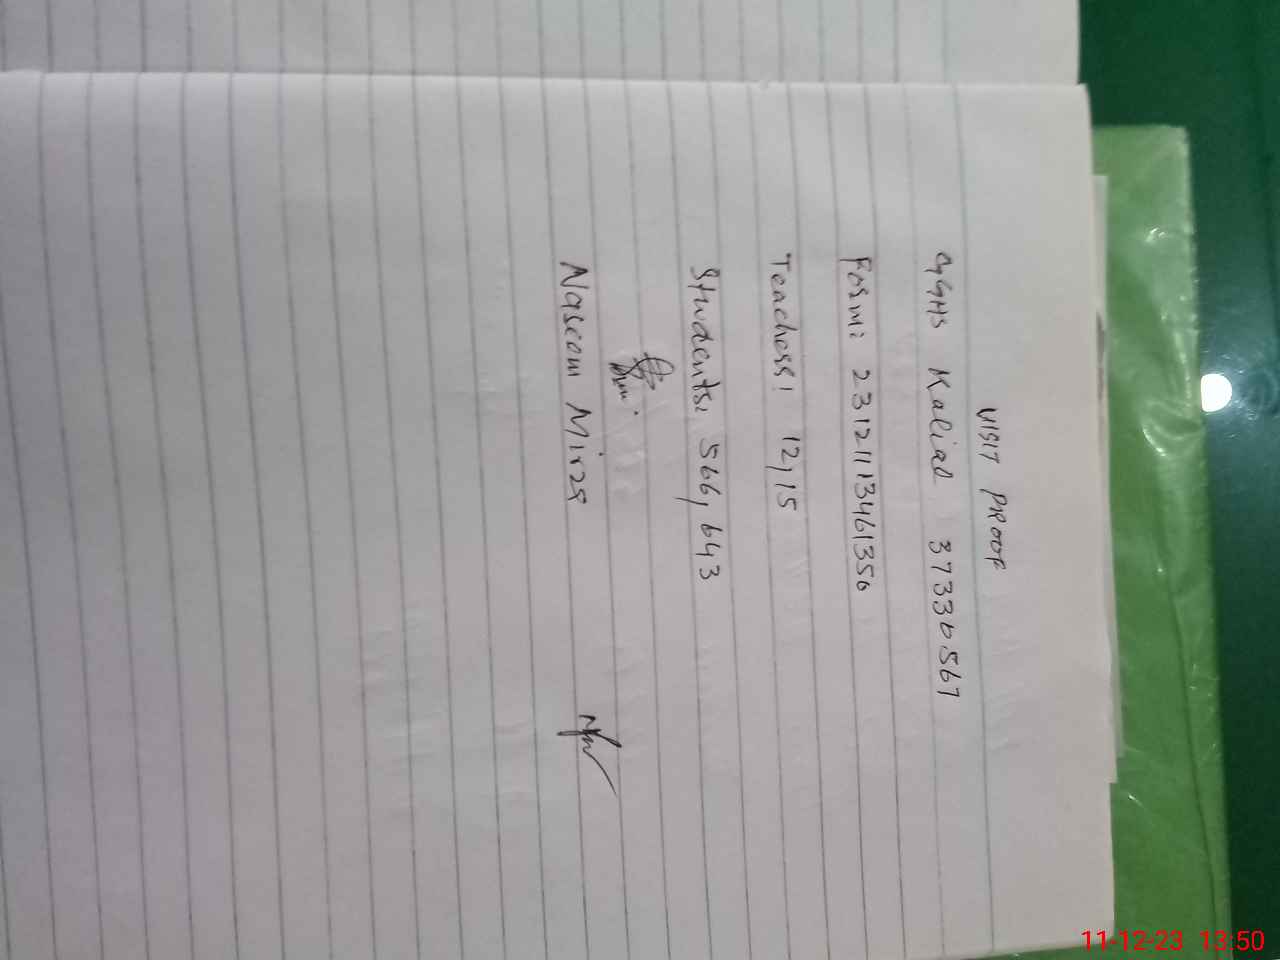 VISIT PROOF
GGHS Kalial 37330567
Form: 23121113461350
Teachers: 12,15
Students: 566, 643
Naseem Mirza
11-12-23 13:50